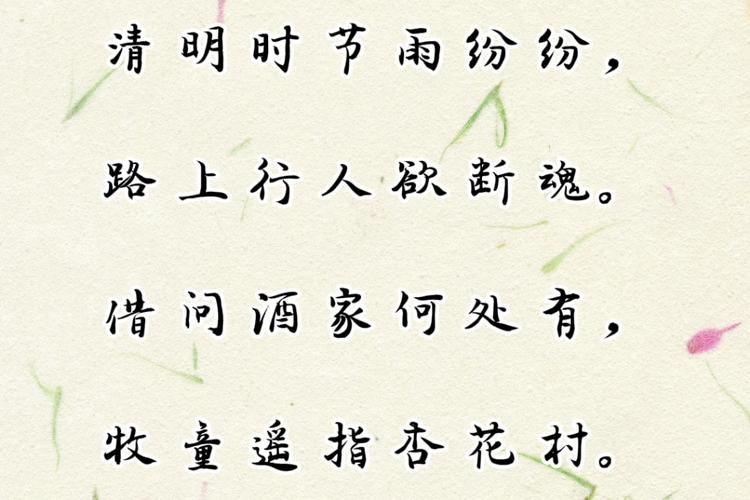 清明时节雨纷纷，
路上行人欲断魂。
借问酒家何处有，
牧童遥指杏花村。